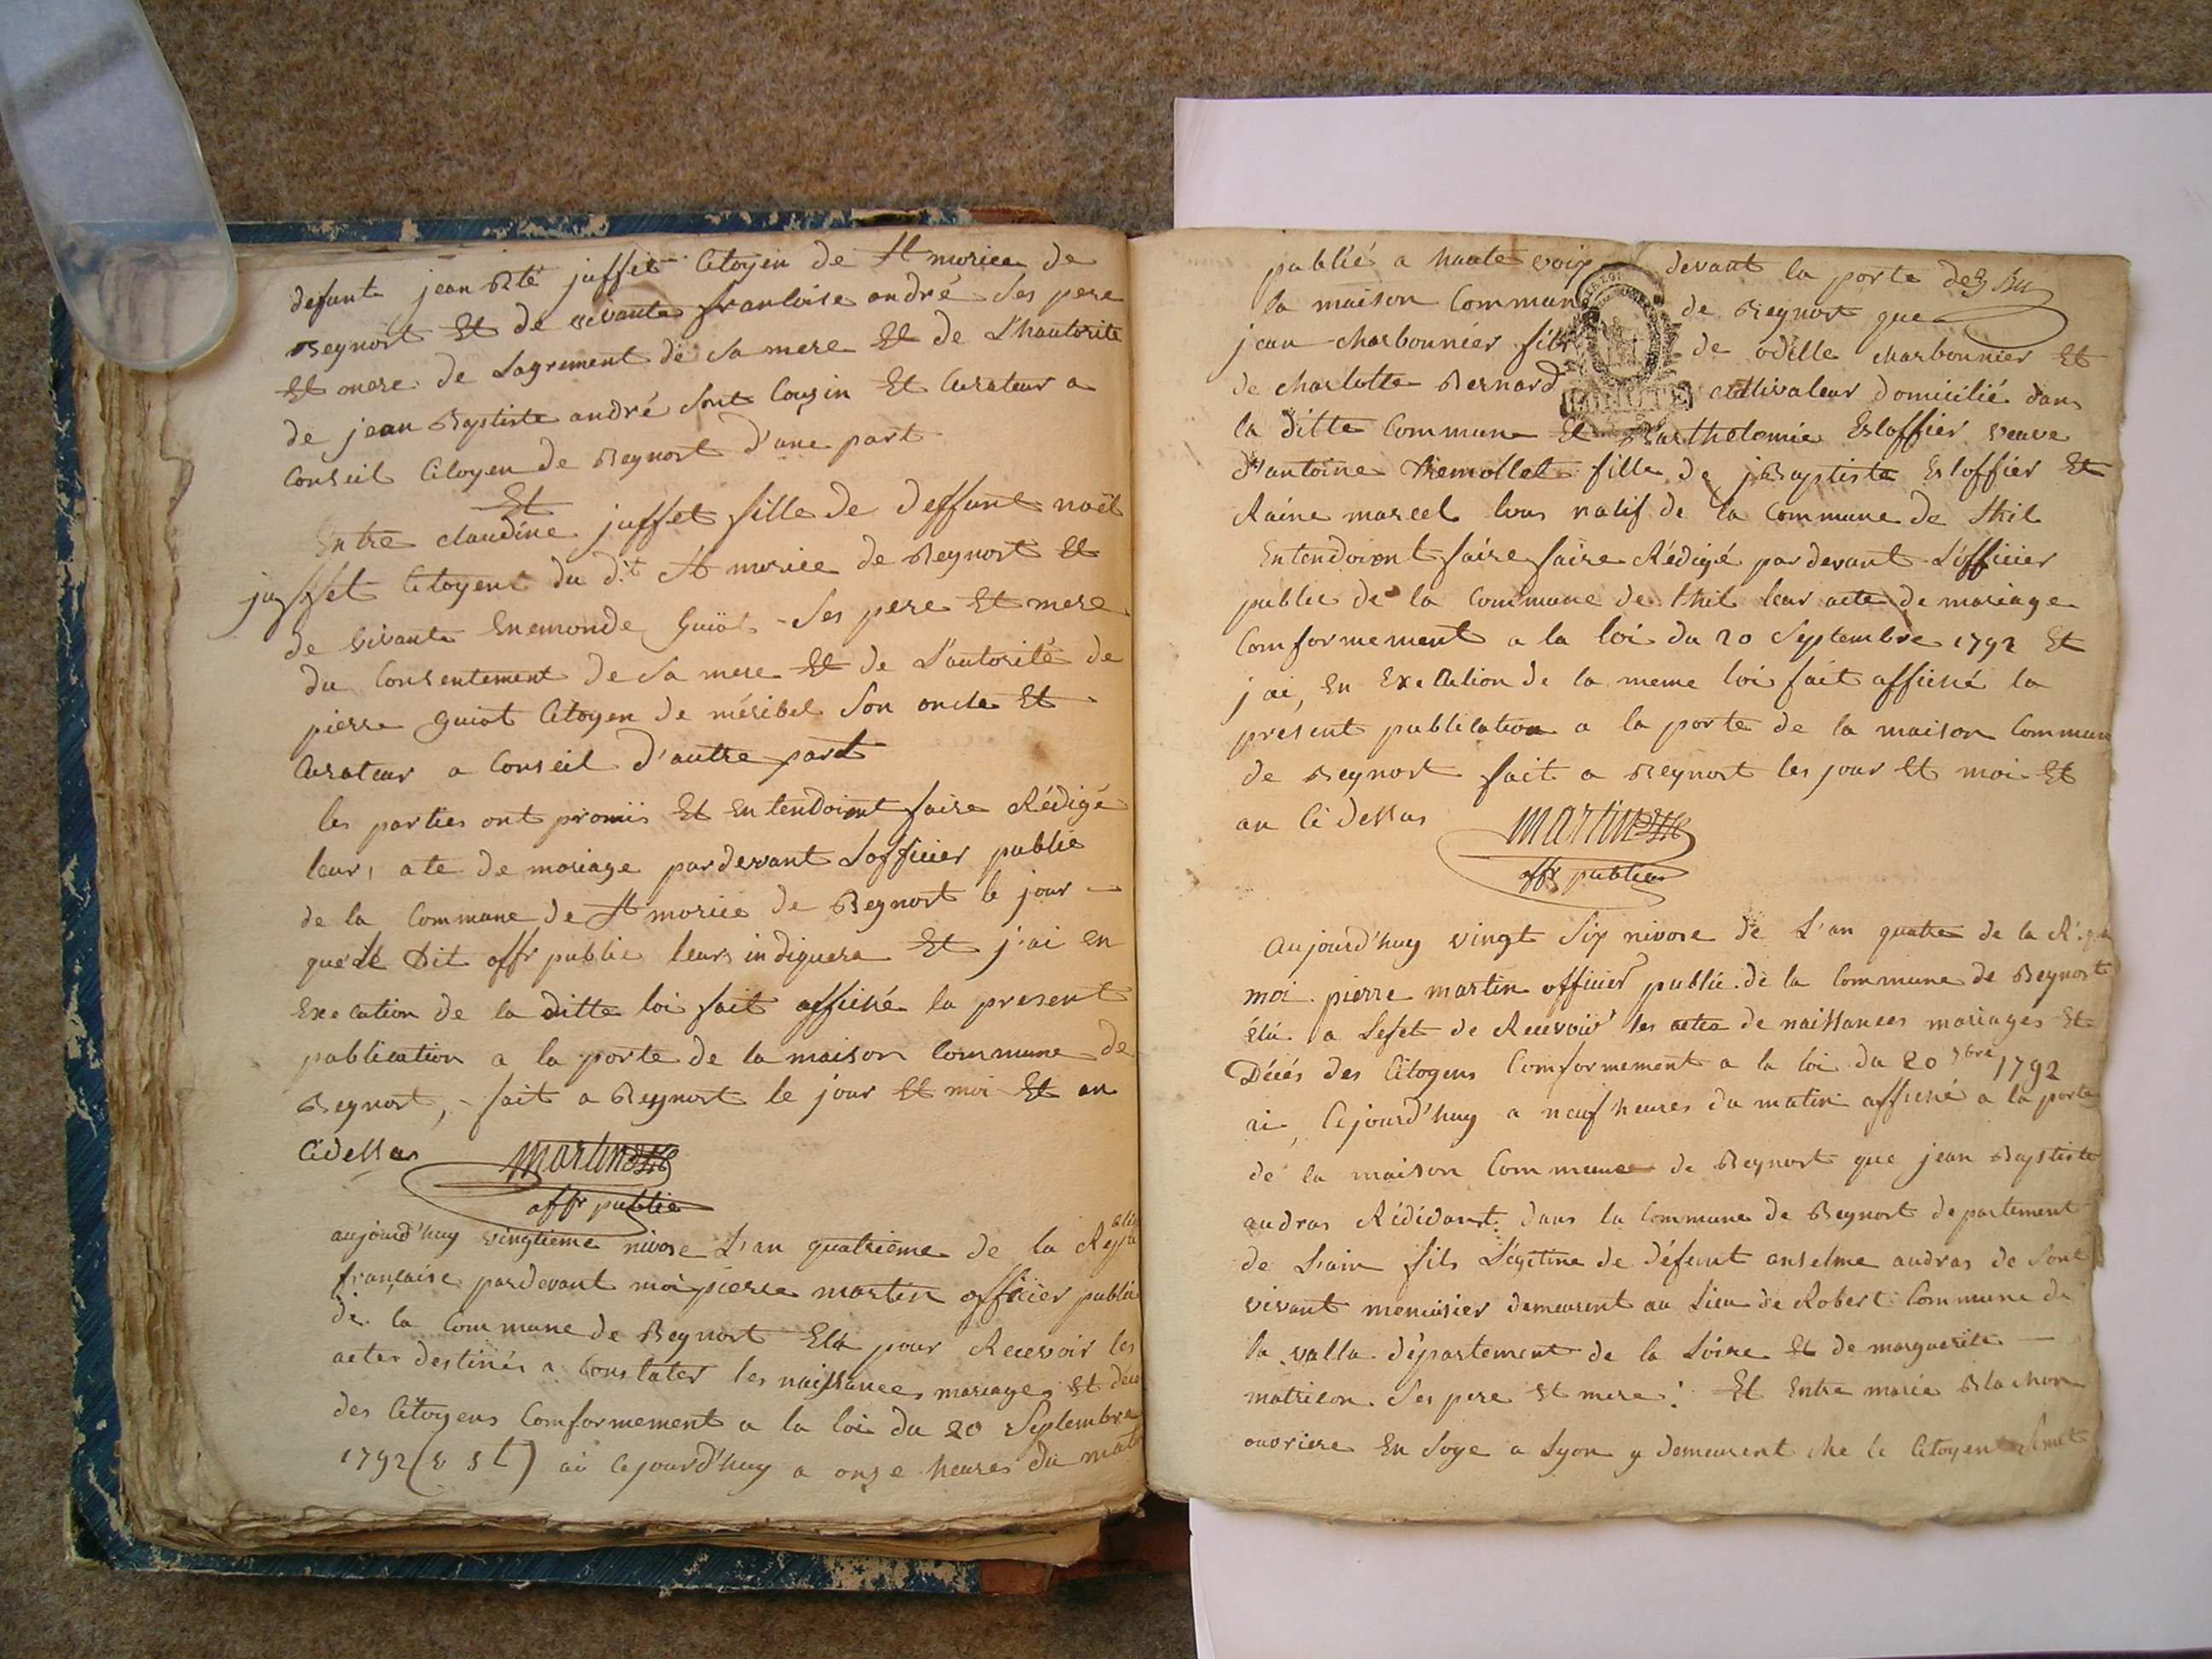 defunt jean Bte juffet Citoyen de St morice de
Beynost Et de vivante franloise andré Ses pere
Et mere de Lagrement de Sa mere Et de L'hautorité
de jean Baptiste andré Sont Cousin Et Curateur a
Conseil Citoyen de Beynost d'une part
Et
Entre claudine juffet fille de deffunt noël
juffet Citoyent du dit St morice de Beynost Et
de vivante Enemonde Guiot - Ses pere Et mere
du Consentement de Sa mere Et de L'autorité de
pierre Guiot Citoyen de méribel Son oncle Et
Curateur a Conseil d'autre part
les parties ont promis Et Entendoient faire Rédigé
leur, ate de mariage pardevant Lofficier public
de la Commune de St morice de Beynost le jour —
que Le Dit offr public leurs indiquera Et j'ai en
Execation de la ditte loi fait affiché la present
publication a la porte de la maison Commune de
Beynost, - fait a Beynost le jour Et moi Et an
Cidessus martin
offr public
aujourd'huy vingtieme nivose L'an quatrieme de la
française pardevant moi pierre martin officier public
de la Commune de Beynost Elu pour Recevoir les
actes destinés a Constater les naissances mariages Et
des Citoyens Comformement a la loi du 20 Septembre
1792 (v st) ai Cejourd'huy a onze heures du
publié a haute voix devant la porte de
la maison Commune de Beynost que
jean charbonnier fils de odille charbonnier Et
de charlotte Bernard cultivateur domicilié dans
la ditte Commune Et Barthelomie Esloffier veuve
d'antoine Tremollet fille de jBaptiste Esloffier Et
Raine marcel tous natif de la Commune de thil
Entendoient faire faire Rédigé pardevant Lofficier
public de la Commune de thil leur acte de mariage
Comformement a la loi du 20 Septembre 1792 Et
j'ai, En Execution de la meme loi fait affiché la
présent publication a la porte de la maison Commun
de Beynost fait a Beynost les jour Et moi Et
an Ci dessus martin
offr public
Aujourd'huy vingt Six nivose de L'an quatre de la
moi pierre martin officier public de la Commune de Beynost
élu a Lefet de Recevoir les actes de naissances mariages Et
Décés des Citoyens Comformement a la loi du 20 7bre 1792
ai, Cejourd'huy a neuf heures du matin affiché a la porte
de la maison Commune de Beynost que jean Baptiste
audras Rédidant dans la Commune de Beynost departement
de L'ain fils Légitime de défunt anselme audras de Sont
vivant menuisier demeurent au Lieu de Robert Commune de
la valla département de la Loire Et de marguerite —
matricon Ses pere Et mere : Et Entre marie Blachon
ouvriere En Soye a Lyon y demeurent che le Citoyen